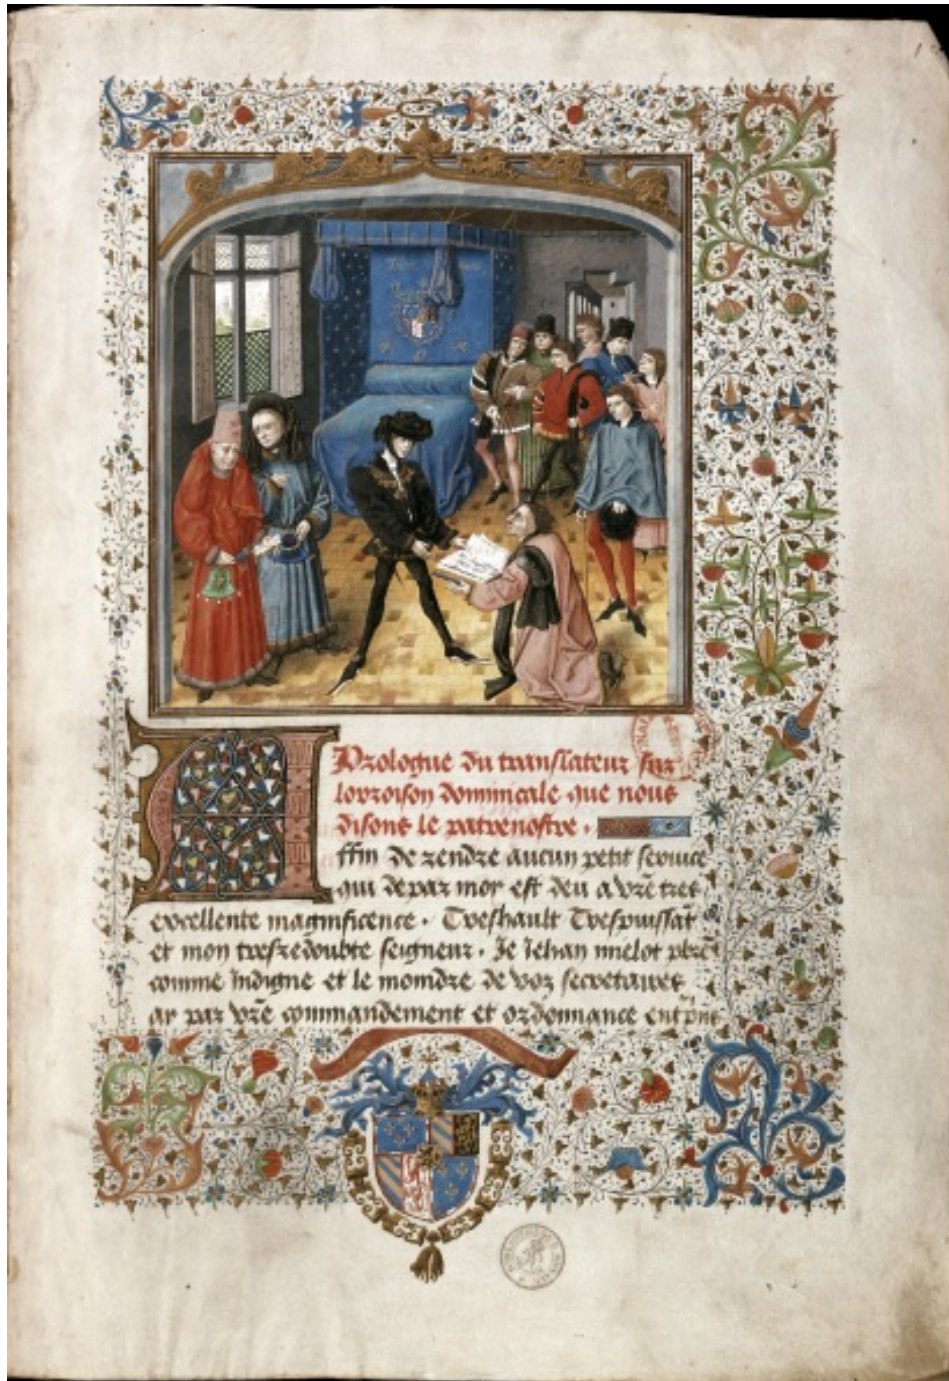 Prologue du translateur sur
lorroison dominicale que nous
disons le patrenostre .
Affin de rendre aucun petit service
qui de par moy est deu a vr̄e tres
excellente magnificence . Treshault Trespuissāt
et mon tresredoubte seigneur . Je Jehan mielot pbrē
comme Indigne et le moindre de voz secretaires
ay par vr̄e commandement et ordonnance